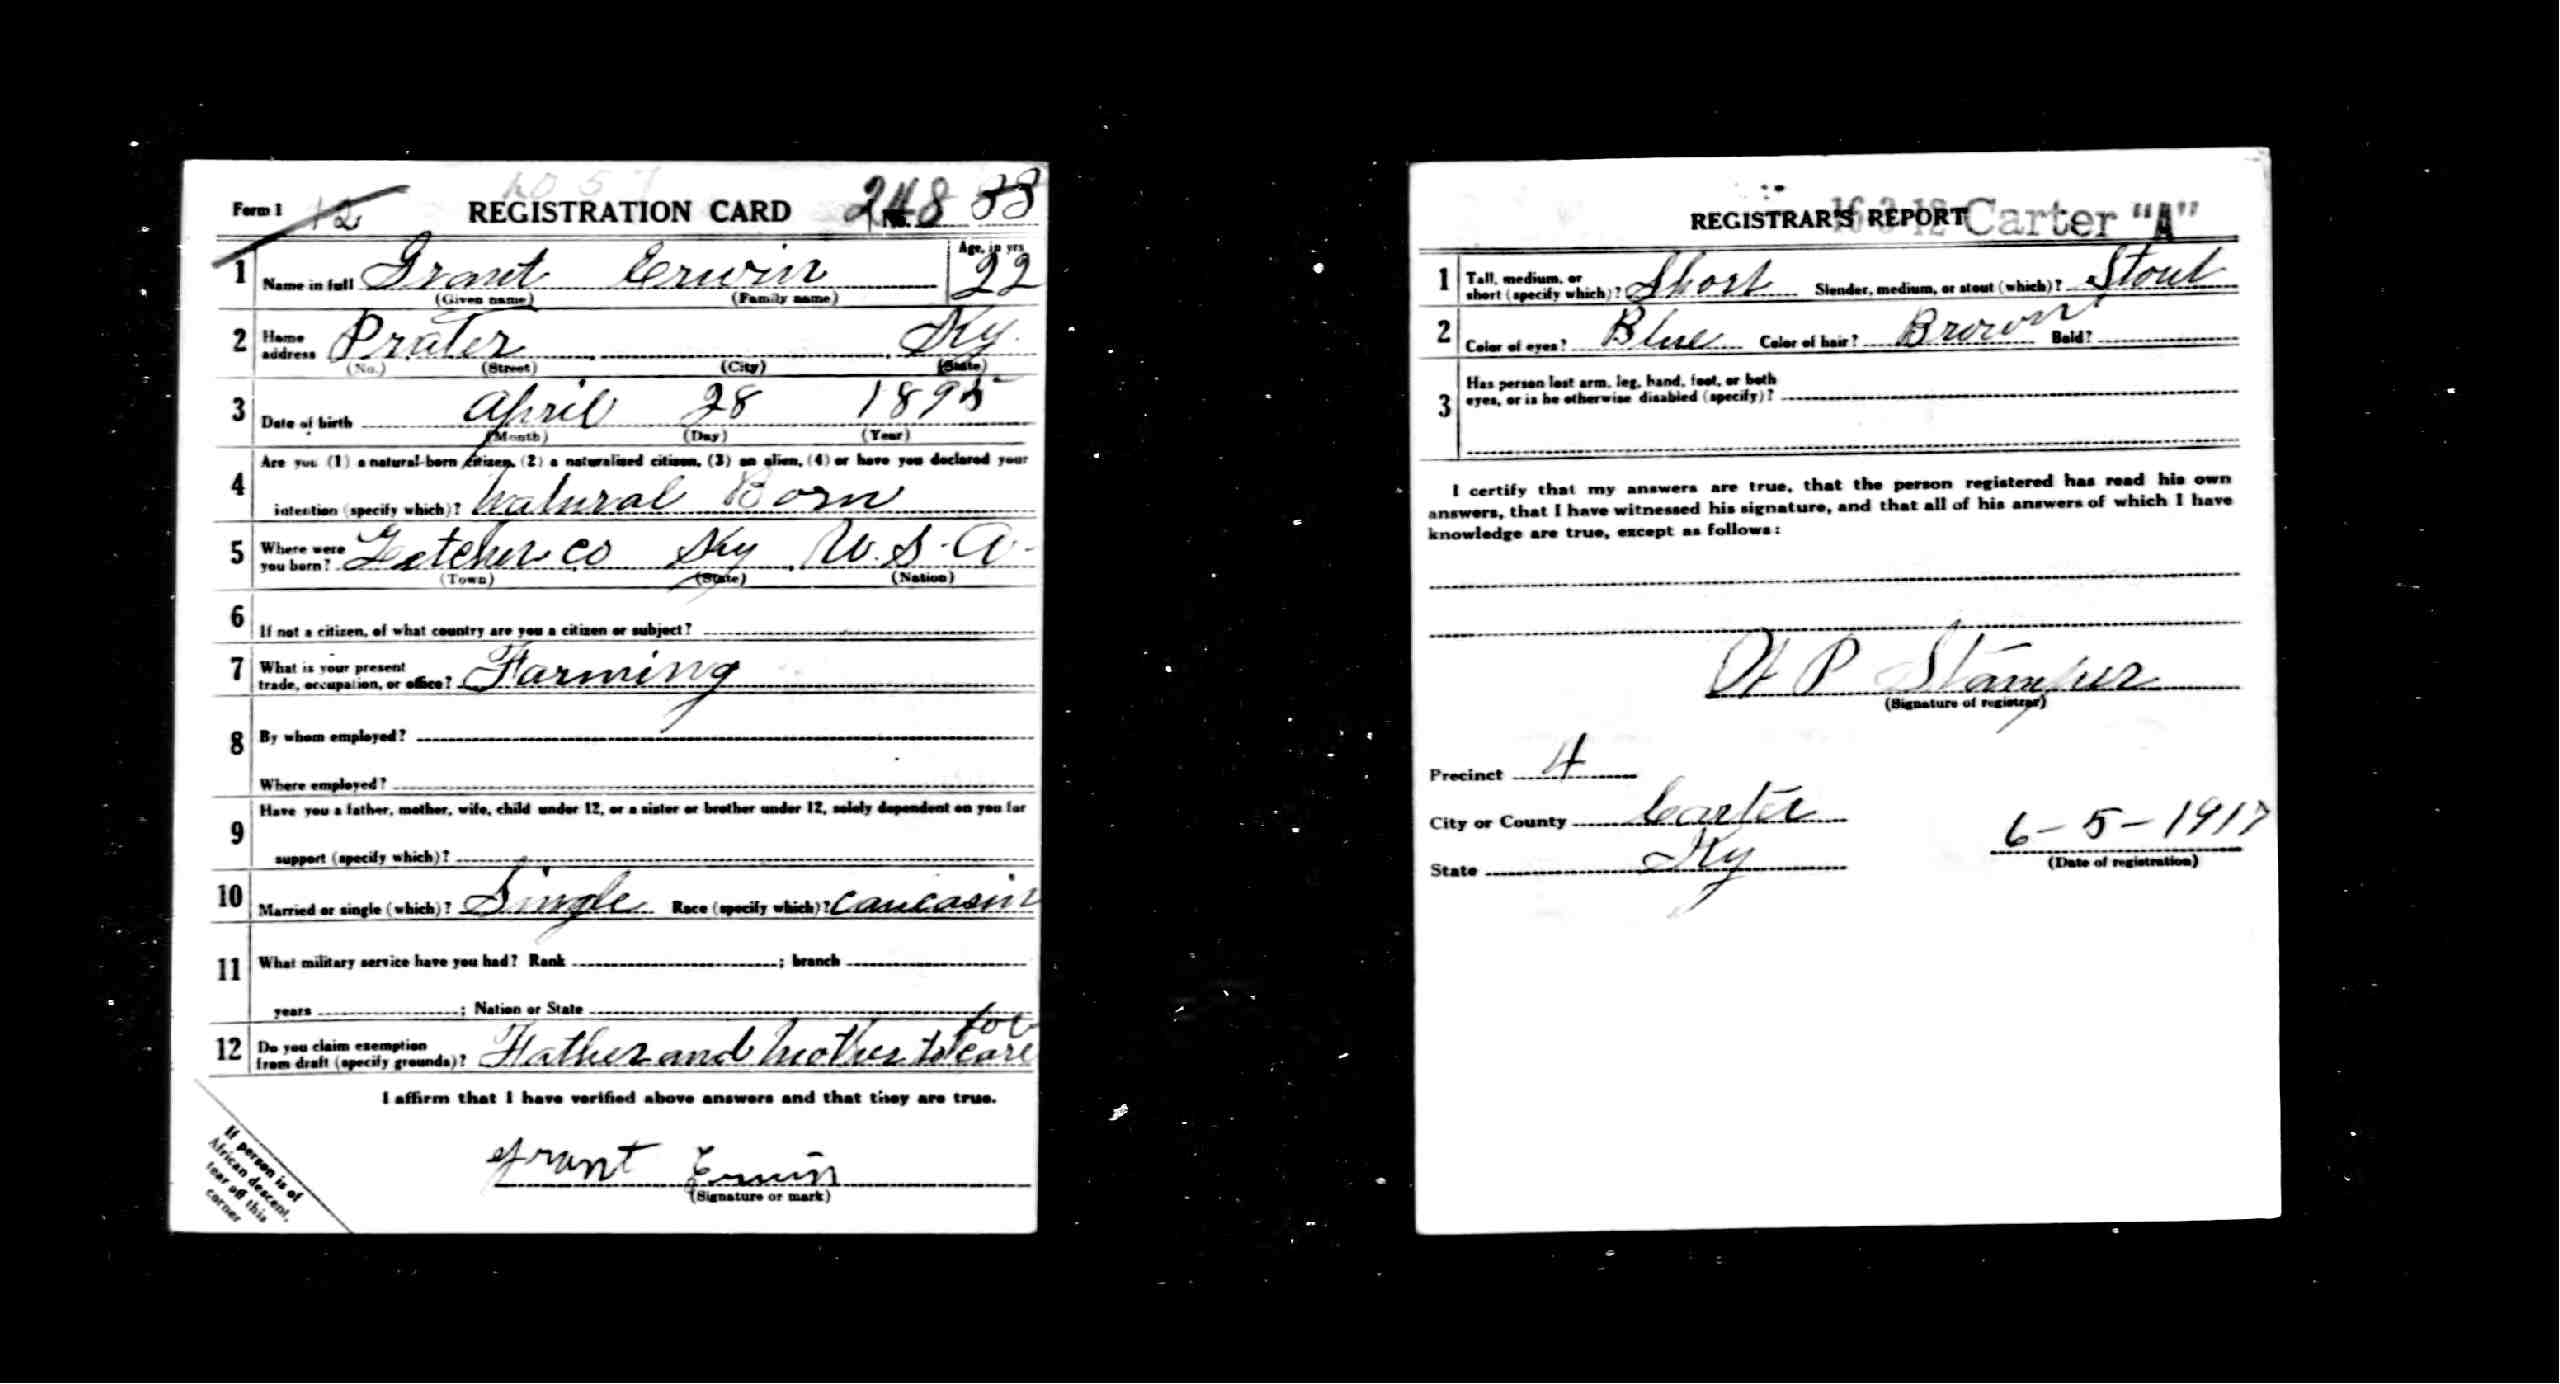 Form 1 12 REGISTRATION CARD No. 248 33
1 Name in full Grant Erwin Age, in yrs 22
(Given name) (Family name)
2 Home address Prater Ky.
(No.) (Street) (City) (State)
3 Date of birth April 28 1895
(Month) (Day) (Year)
4 Are you (1) a natural-born citizen, (2) a naturalized citizen, (3) an alien, (4) or have you declared your
intention (specify which)? Natural Born
5 Where were you born? Letcher co Ky U.S.A.
(Town) (State) (Nation)
6 If not a citizen, of what country are you a citizen or subject?
7 What is your present trade, occupation, or office? Farming
8 By whom employed?
Where employed?
9 Have you a father, mother, wife, child under 12, or a sister or brother under 12, solely dependent on you for
support (specify which)?
10 Married or single (which)? Single Race (specify which)? Caucasin
11 What military service have you had? Rank ; branch
years ; Nation or State
12 Do you claim exemption from draft (specify grounds)? Father and Mother to care for
I affirm that I have verified above answers and that they are true.
Grant Erwin
(Signature or mark)
If person is of
African descent,
tear off this
corner
REGISTRAR'S REPORT Carter "A"
1 Tall, medium, or short (specify which)? Short Slender, medium, or stout (which)? Stout
2 Color of eyes? Blue Color of hair? Brown Bald?
3 Has person lost arm, leg, hand, foot, or both
eyes, or is he otherwise disabled (specify)?
I certify that my answers are true, that the person registered has read his own
answers, that I have witnessed his signature, and that all of his answers of which I have
knowledge are true, except as follows:
H P Stamper
(Signature of registrar)
Precinct 4
City or County Carter
State Ky
6-5-1917
(Date of registration)